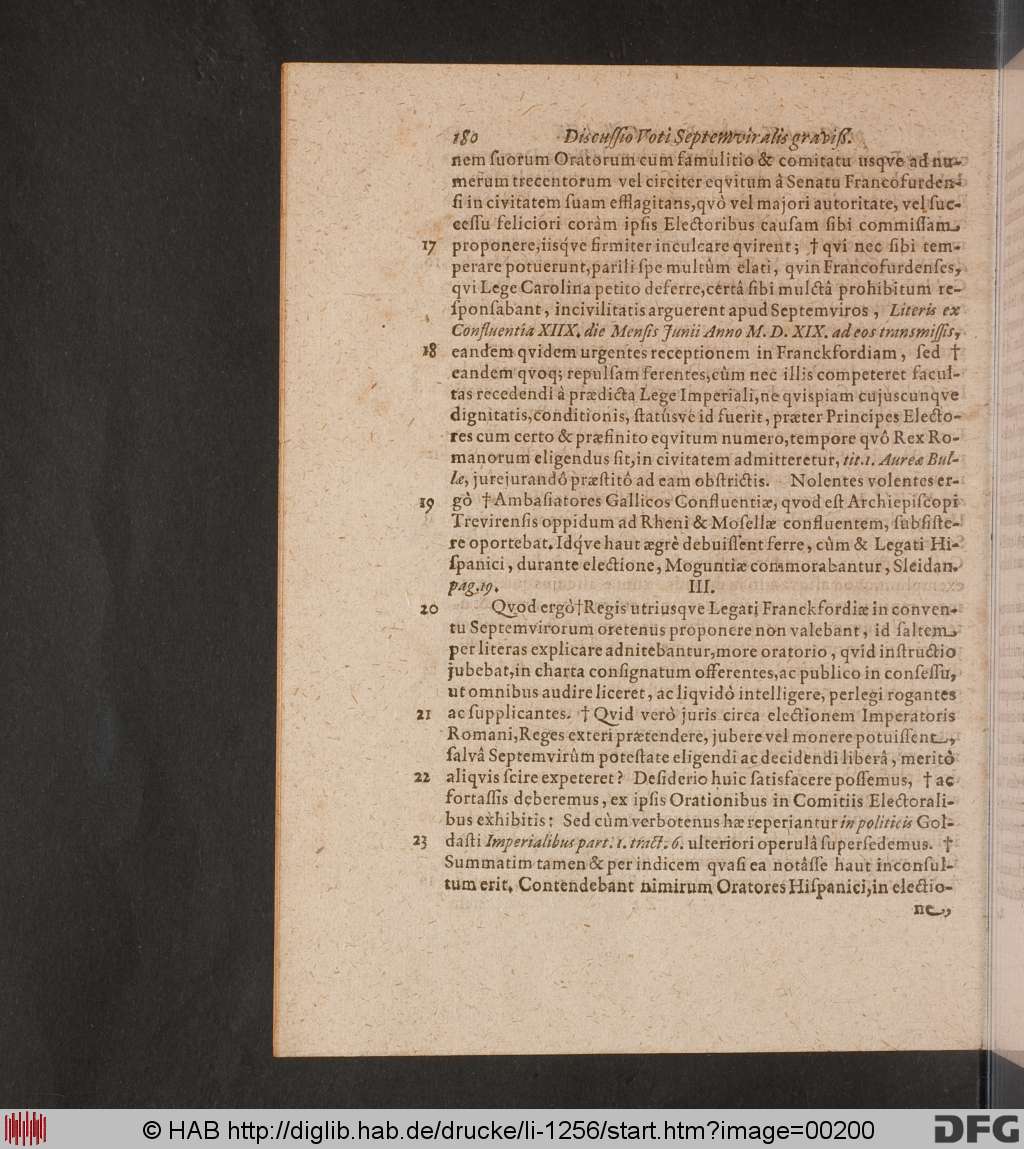 180 Discuſſio Voti Septemviralis graviß.
nem ſuorum Oratorum cum famulitio & comitatu usqve ad nu-
merum trecentorum vel circiter eqvitum â Senatu Francofurden-
ſi in civitatem ſuam efflagitans, qvò vel majori autoritate, vel ſuc-
ceſſu feliciori coràm ipſis Electoribus cauſam ſibi commiſſam
17 proponere, iisq́ve firmiter inculcare qvirent; † qvi nec ſibi tem-
perare potuerunt, parili ſpe multùm elati, qvin Francofurdenſes,
qvi Lege Carolina petito deferre, certâ ſibi mulctâ prohibitum re-
ſponſabant, incivilitatis arguerent apud Septemviros, Literis ex
Confluentia XIIX. die Menſis Junii Anno M. D. XIX. ad eos transmiſſis,
18 eandem qvidem urgentes receptionem in Franckfordiam, ſed †
eandem qvoq; repulſam ferentes, cùm nec illis competeret facul-
tas recedendi â prædicta Lege Imperiali, ne qvispiam cujuscunqve
dignitatis, conditionis, ſtatúsve id fuerit, præter Principes Electo-
res cum certo & præfinito eqvitum numero, tempore qvô Rex Ro-
manorum eligendus ſit, in civitatem admitteretur, tit. 1. Aureæ Bul-
læ, jurejurandô præſtitô ad eam obſtrictis. Nolentes volentes er-
19 gò † Ambaſiatores Gallicos Confluentiæ, qvod eſt Archiepiſcopi
Trevirenſis oppidum ad Rheni & Moſellæ confluentem, ſubſiſte-
re oportebat. Idq́ve haut ægrè debuiſſent ferre, cùm & Legati Hi-
ſpanici, durante electione, Moguntiæ commorabantur, Sleidan.
pag. 19. III.
20 Qvod ergò † Regis utriusqve Legati Franckfordiæ in conven-
tu Septemvirorum oretenus proponere non valebant, id ſaltem
per literas explicare adnitebantur, more oratorio, qvid inſtructio
jubebat, in charta conſignatum offerentes, ac publico in conſeſſu,
ut omnibus audire liceret, ac liqvidò intelligere, perlegi rogantes
21 ac ſupplicantes. † Qvid verò juris circa electionem Imperatoris
Romani, Reges exteri prætendere, jubere vel monere potuiſſent,
ſalvâ Septemvirûm poteſtate eligendi ac decidendi liberâ, meritò
22 aliqvis ſcire expeteret? Deſiderio huic ſatisfacere poſſemus, † ac
fortaſſis deberemus, ex ipſis Orationibus in Comitiis Electorali-
bus exhibitis: Sed cùm verbotenus hæ reperiantur in politicis Gol-
23 daſti Imperialibus part. 1. tract. 6. ulteriori operulâ ſuperſedemus. †
Summatim tamen & per indicem qvaſi ea notâſſe haut inconſul-
tum erit. Contendebant nimirum Oratores Hiſpanici, in electio-
ne,
© HAB http://diglib.hab.de/drucke/li-1256/start.htm?image=00200
DFG